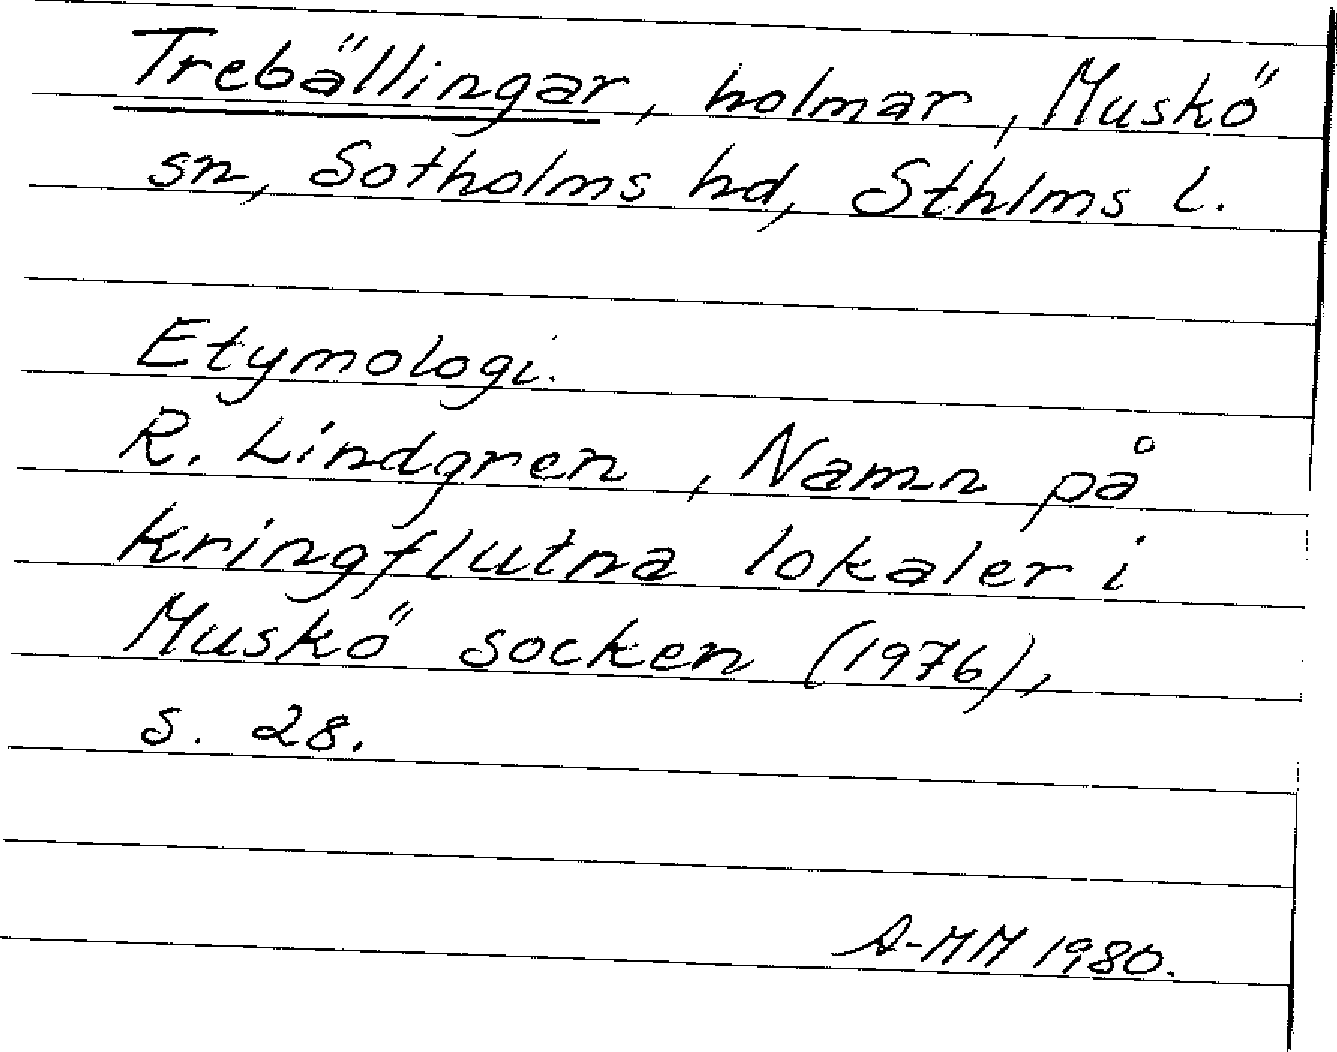 Trebällingar, holmar, Muskö
sn, Sotholms hd, Sthlms l.
Etymologi.
R. Lindgren, Namn på
kringflutna lokaler i
Muskö socken (1976),
s. 28.
A-MM 1980.